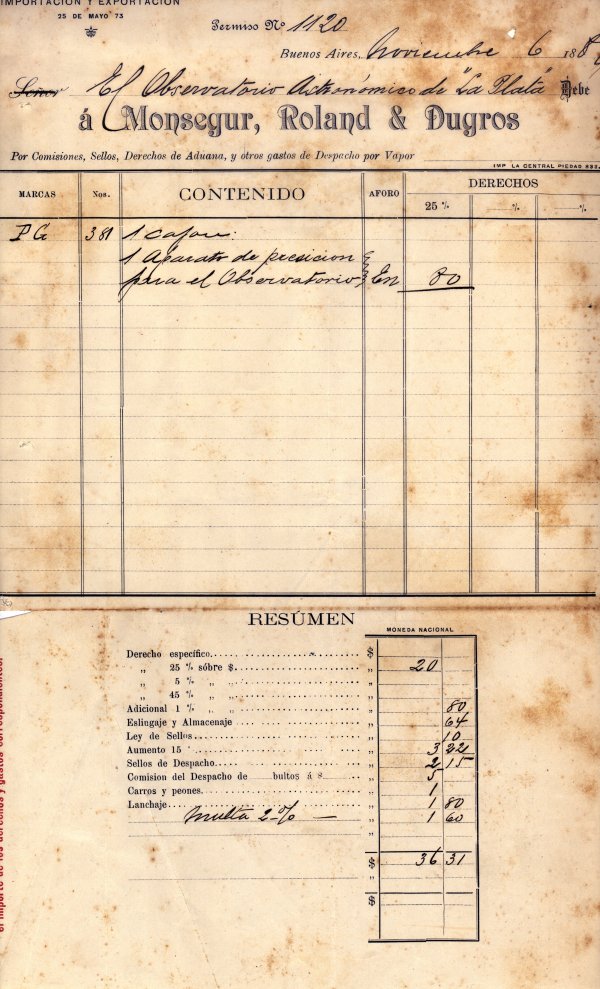 IMPORTACIÓN Y EXPORTACIÓN
25 DE MAYO 73
Permiso Nº 1120
Buenos Aires, Noviembre 6 188
Señor El Observatorio Astronómico de "La Plata" Debe
á Monsegur, Roland & Dugros
Por Comisiones, Sellos, Derechos de Aduana, y otros gastos de Despacho por Vapor
IMP LA CENTRAL PIEDAD 833
MARCAS Nos. CONTENIDO AFORO DERECHOS
25 % % %
PG 381 1 cajon:
1 Aparato de presicion
para el Observatorio En 80
RESÚMEN
MONEDA NACIONAL
Derecho específico $
„ 25 % sóbre $ „ 20
„ 5 % „ „ „
„ 45 % „ „ „
Adicional 1 % „ „ „ 80
Eslingaje y Almacenaje „ 64
Ley de Sellos „ 10
Aumento 15 % „ 3 221
Sellos de Despacho „ 2 15
Comision del Despacho de bultos á $ „ 5
Carros y peones „ 1
Lanchaje „ 1 80
Multa 2 % — „ 1 60
„
$ 36 31
„
$
el importe de los derechos y gastos correspondientes.